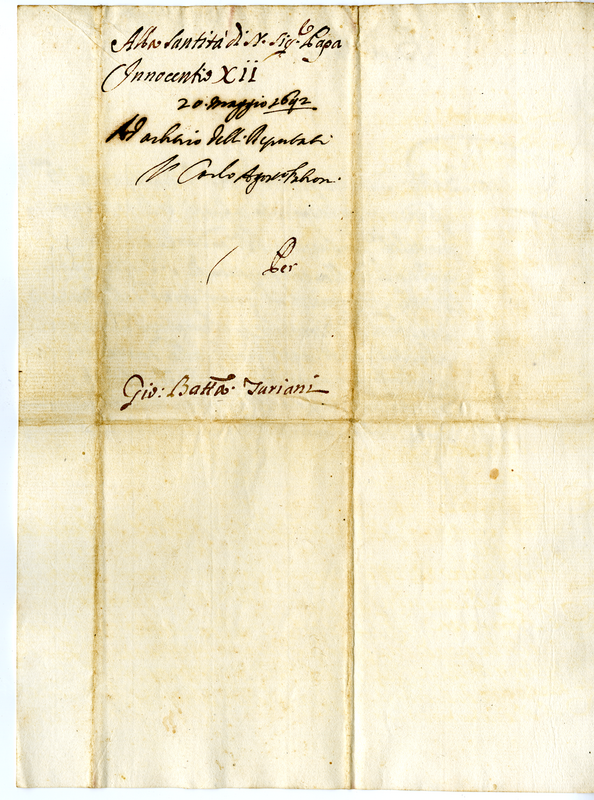 Alla Santità di N. Sig.re Papa
Innocentio XII
20. Maggio 1692
Ad arbitrio delli Deputati
Carlo
Per
Gio: Batta. Turiani